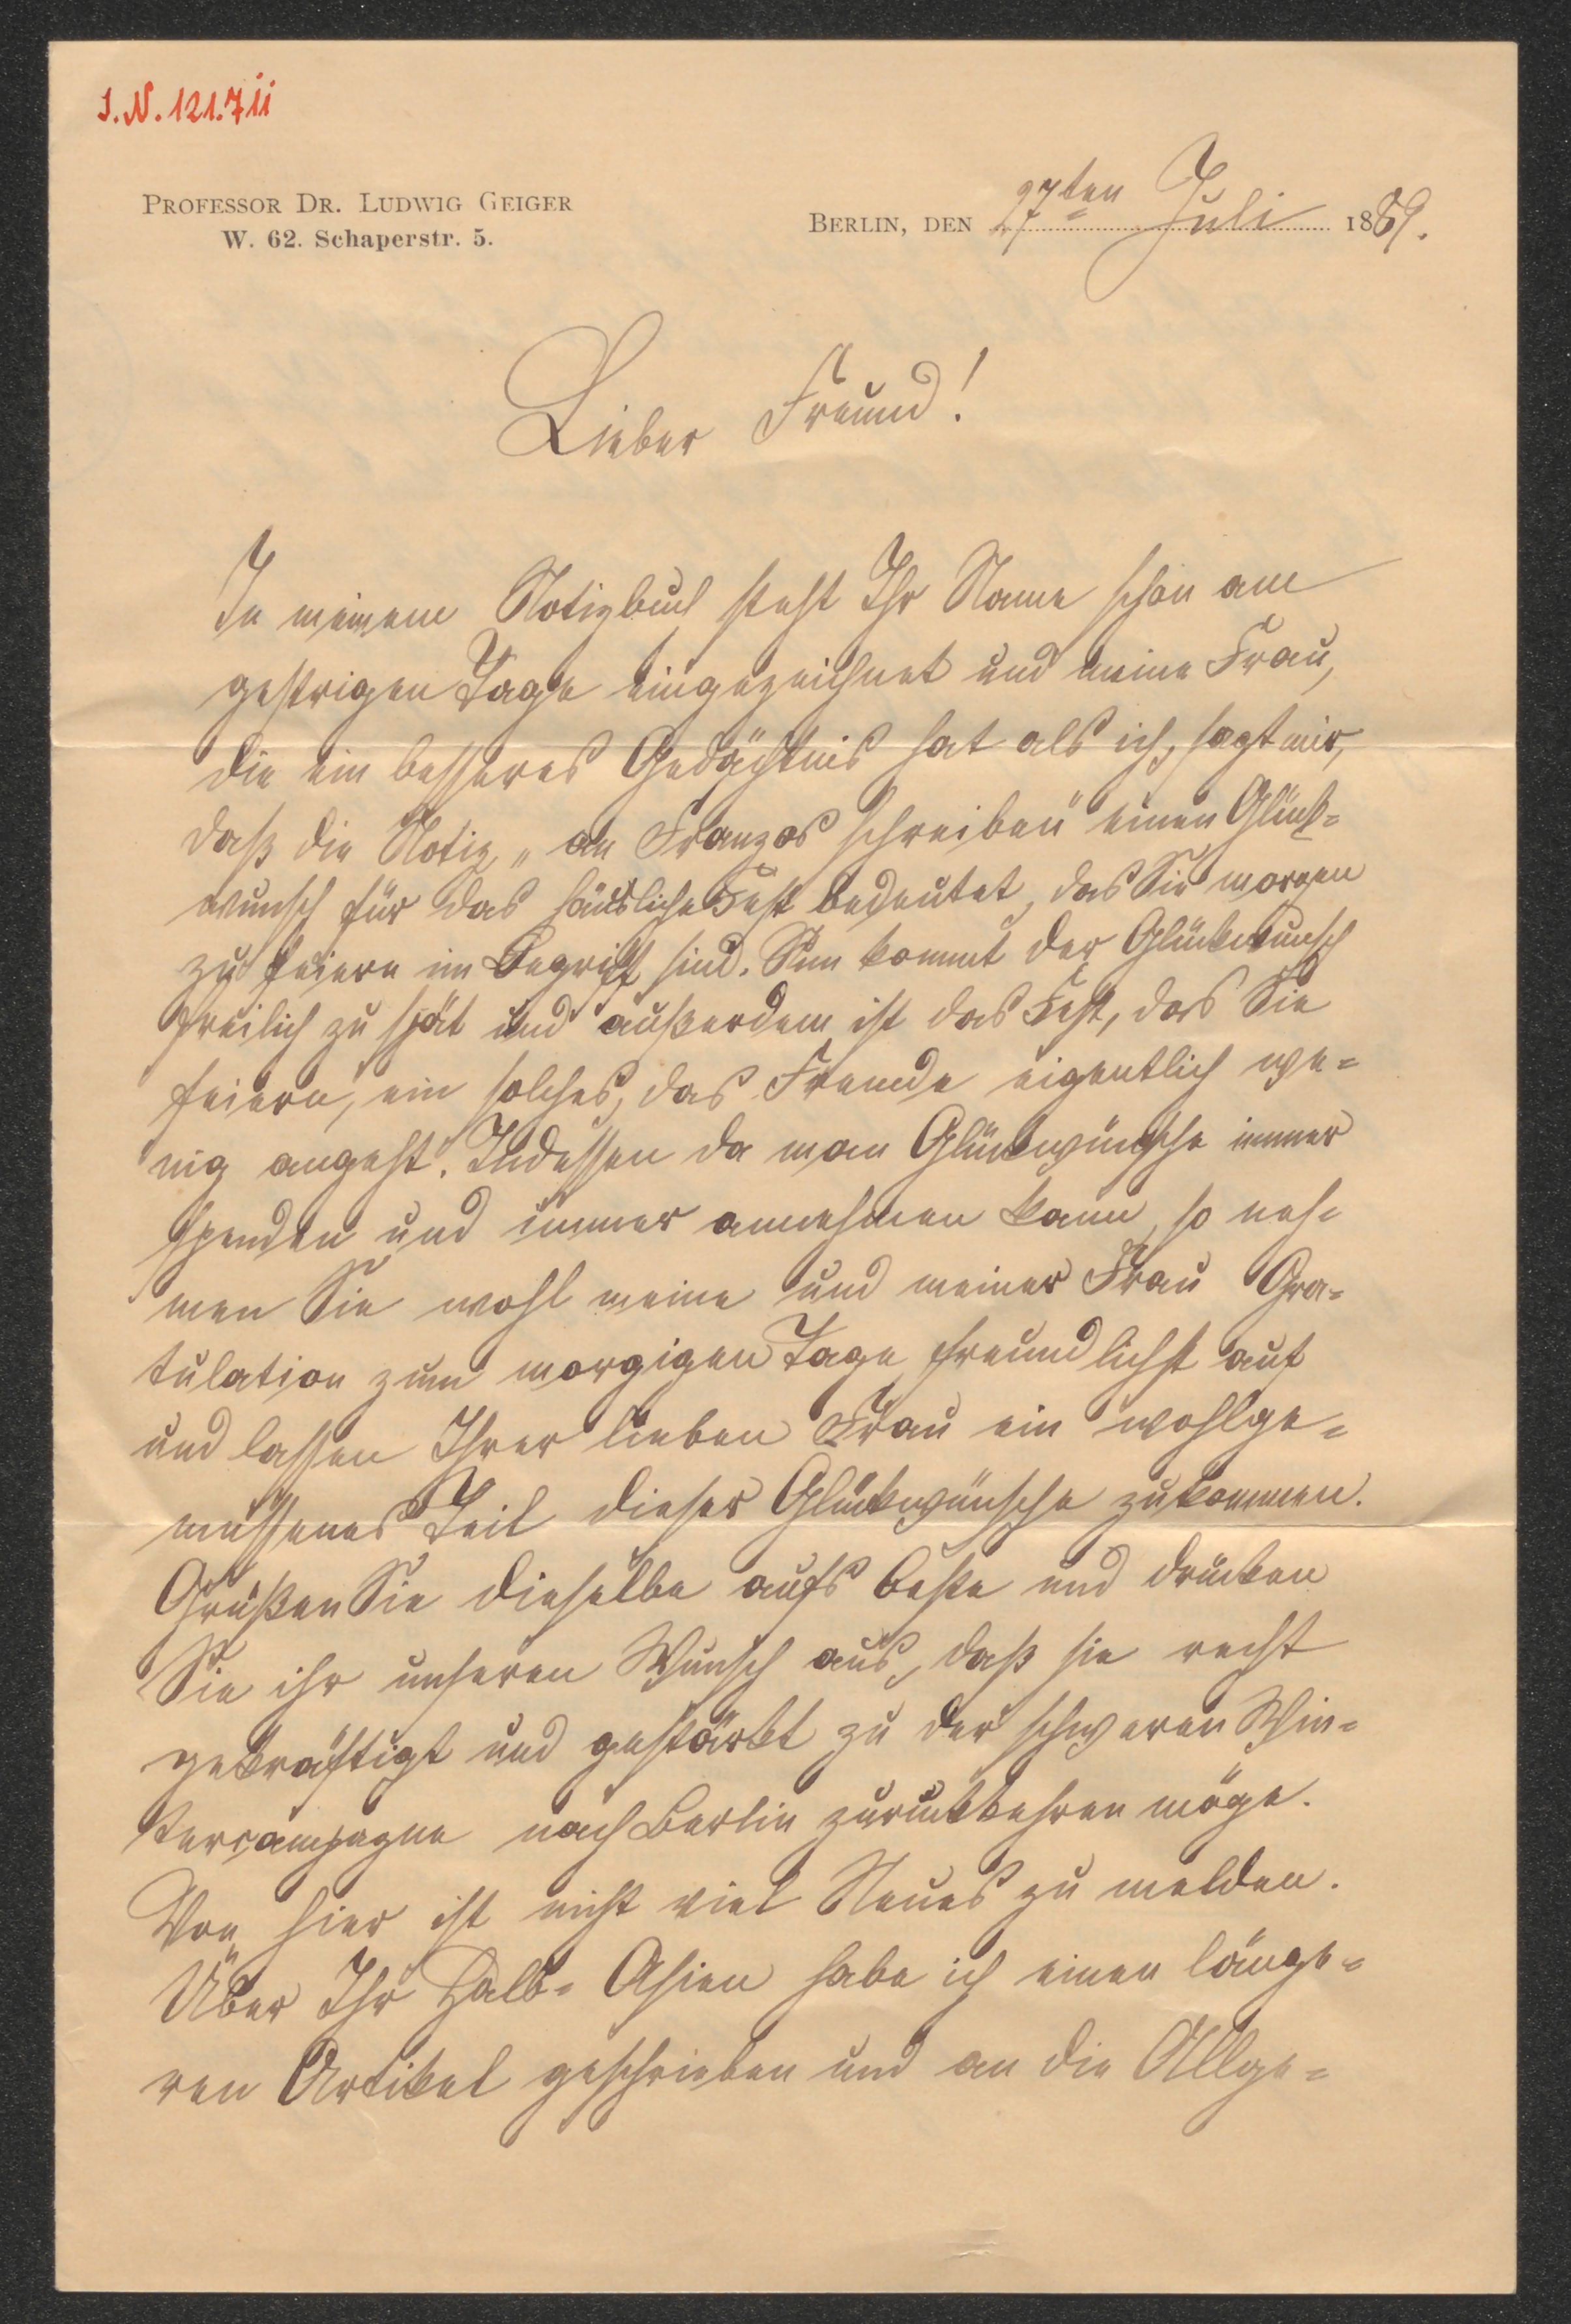 I.N. 121.711
PROFESSOR DR. LUDWIG GEIGER
W. 62. Schaperstr. 5.
BERLIN, DEN 27ten Juli 1889.
Lieber Freund!
In meinem Notizbuch steht Ihr Name schon am
gestrigen Tage eingezeichnet und meine Frau,
die ein besseres Gedächtnis hat als ich, sagt mir,
daß die Notiz „an Franzos schreiben" einen Glück=
wunsch für das häusliche Fest bedeutet, das Sie morgen
zu feiern im Begriff sind. Nun kommt der Glückwunsch
freilich zu spät und außerdem ist das Fest, das Sie
feiern, ein solches, das Fremde eigentlich we=
nig angeht. Indessen da man Glückwünsche immer
spenden und immer annehmen kann, so neh=
men Sie wohl meine und meiner Frau Gra=
tulation zum morgigen Tage freundlichst auf
und lassen Ihrer lieben Frau ein wohlge=
messenes Teil dieser Glückwünsche zukommen.
Grüßen Sie dieselbe aufs beste und drücken
Sie ihr unseren Wunsch aus, daß sie recht
gekräftigt und gestärkt zu der schweren Win=
tercampagne nach Berlin zurückkehren möge.
Von hier ist nicht viel Neues zu melden.
Über Ihr Halb=Asien habe ich einen länge=
ren Artikel geschrieben und an die Allge=